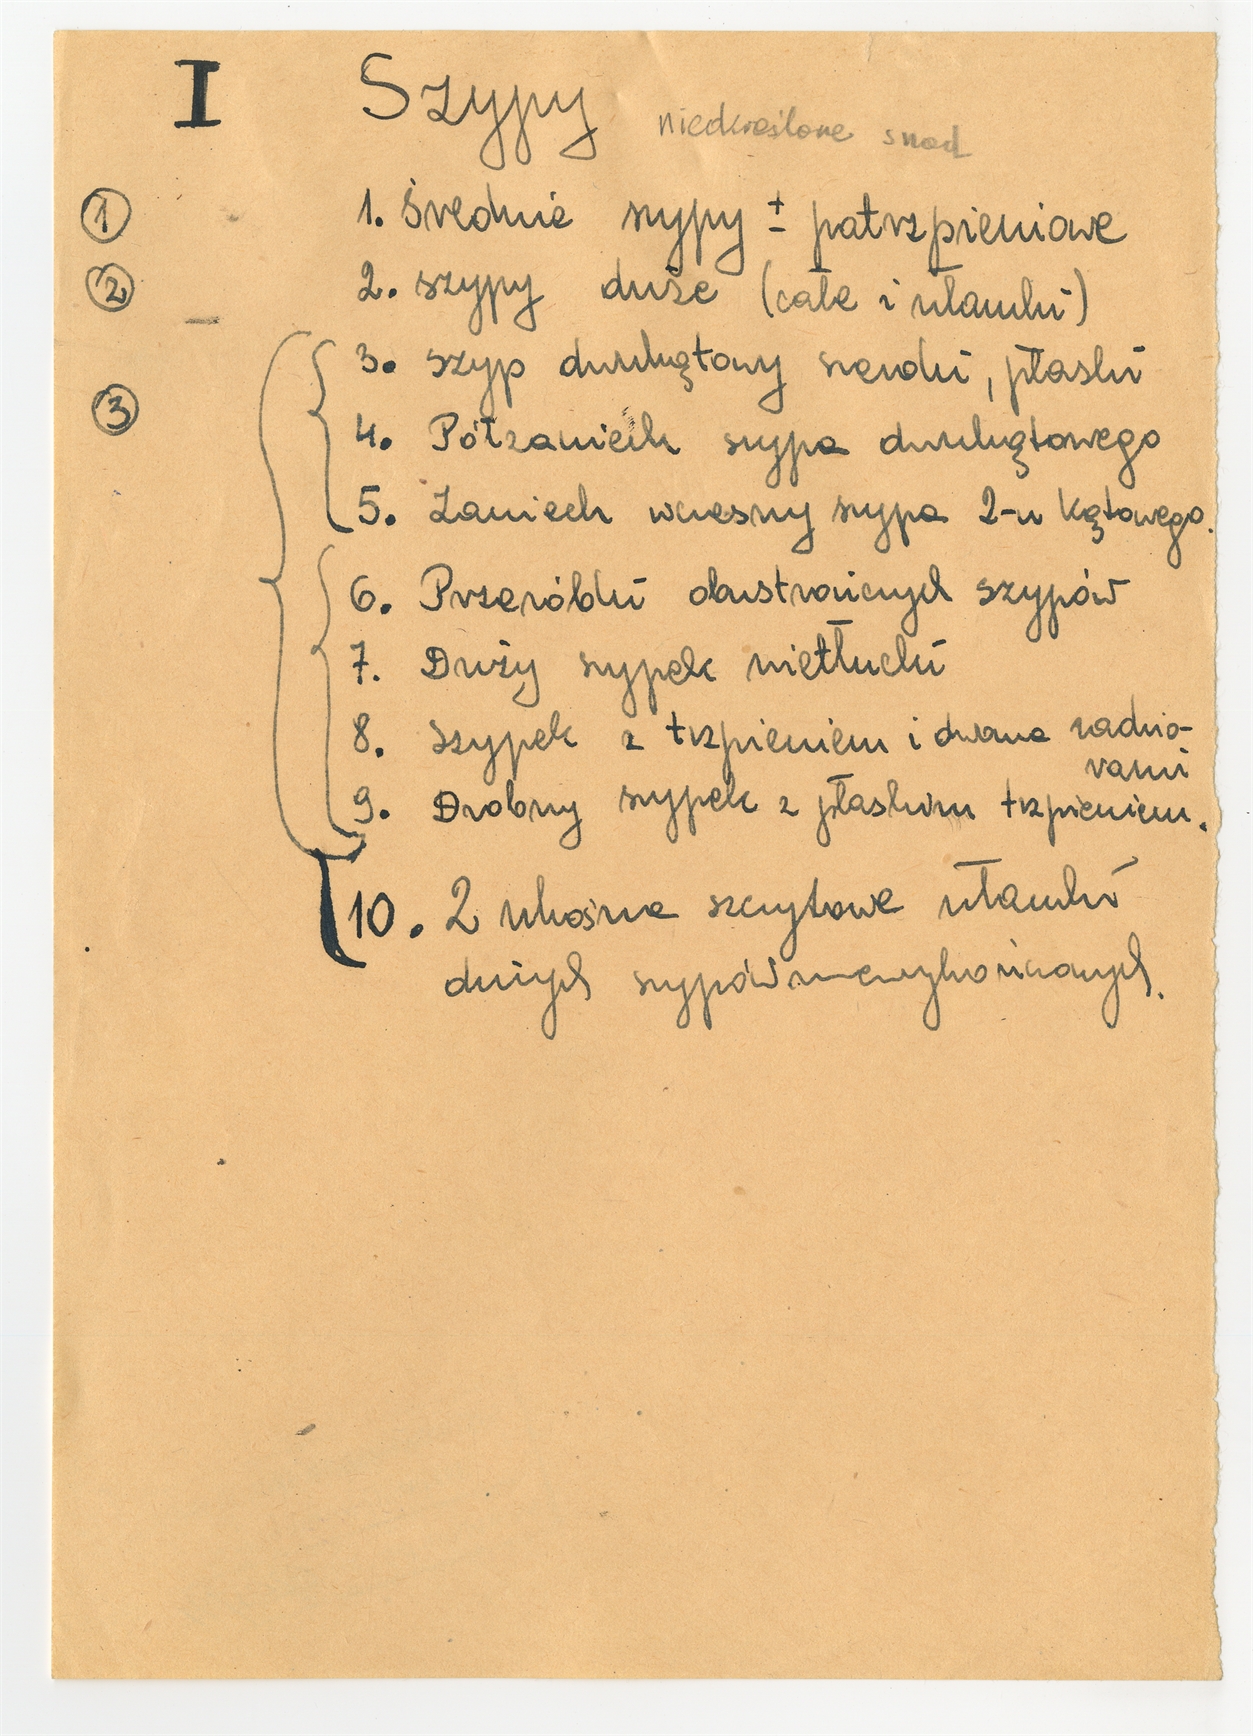 I Szypy nieokreślone
① 1. Średnie szypy ± patrzpieniowe
② 2. szypy duże (całe i ułamki)
3. szyp dwukątowy szeroki, płaski
③ 4. Półzaniech szypa dwukątowego
5. Zaniech wczesny szypa 2-u kątowego.
6. Przeróbki obustronnych szypów
7. Duży szypek nietłucki
8. szypek z trzpieniem i dwoma zadzio-
rami
9. Drobny szypek z płaskim trzpieniem.
10. 2 ukośne szczytowe ułamki
dużych szypów niewykończonych.